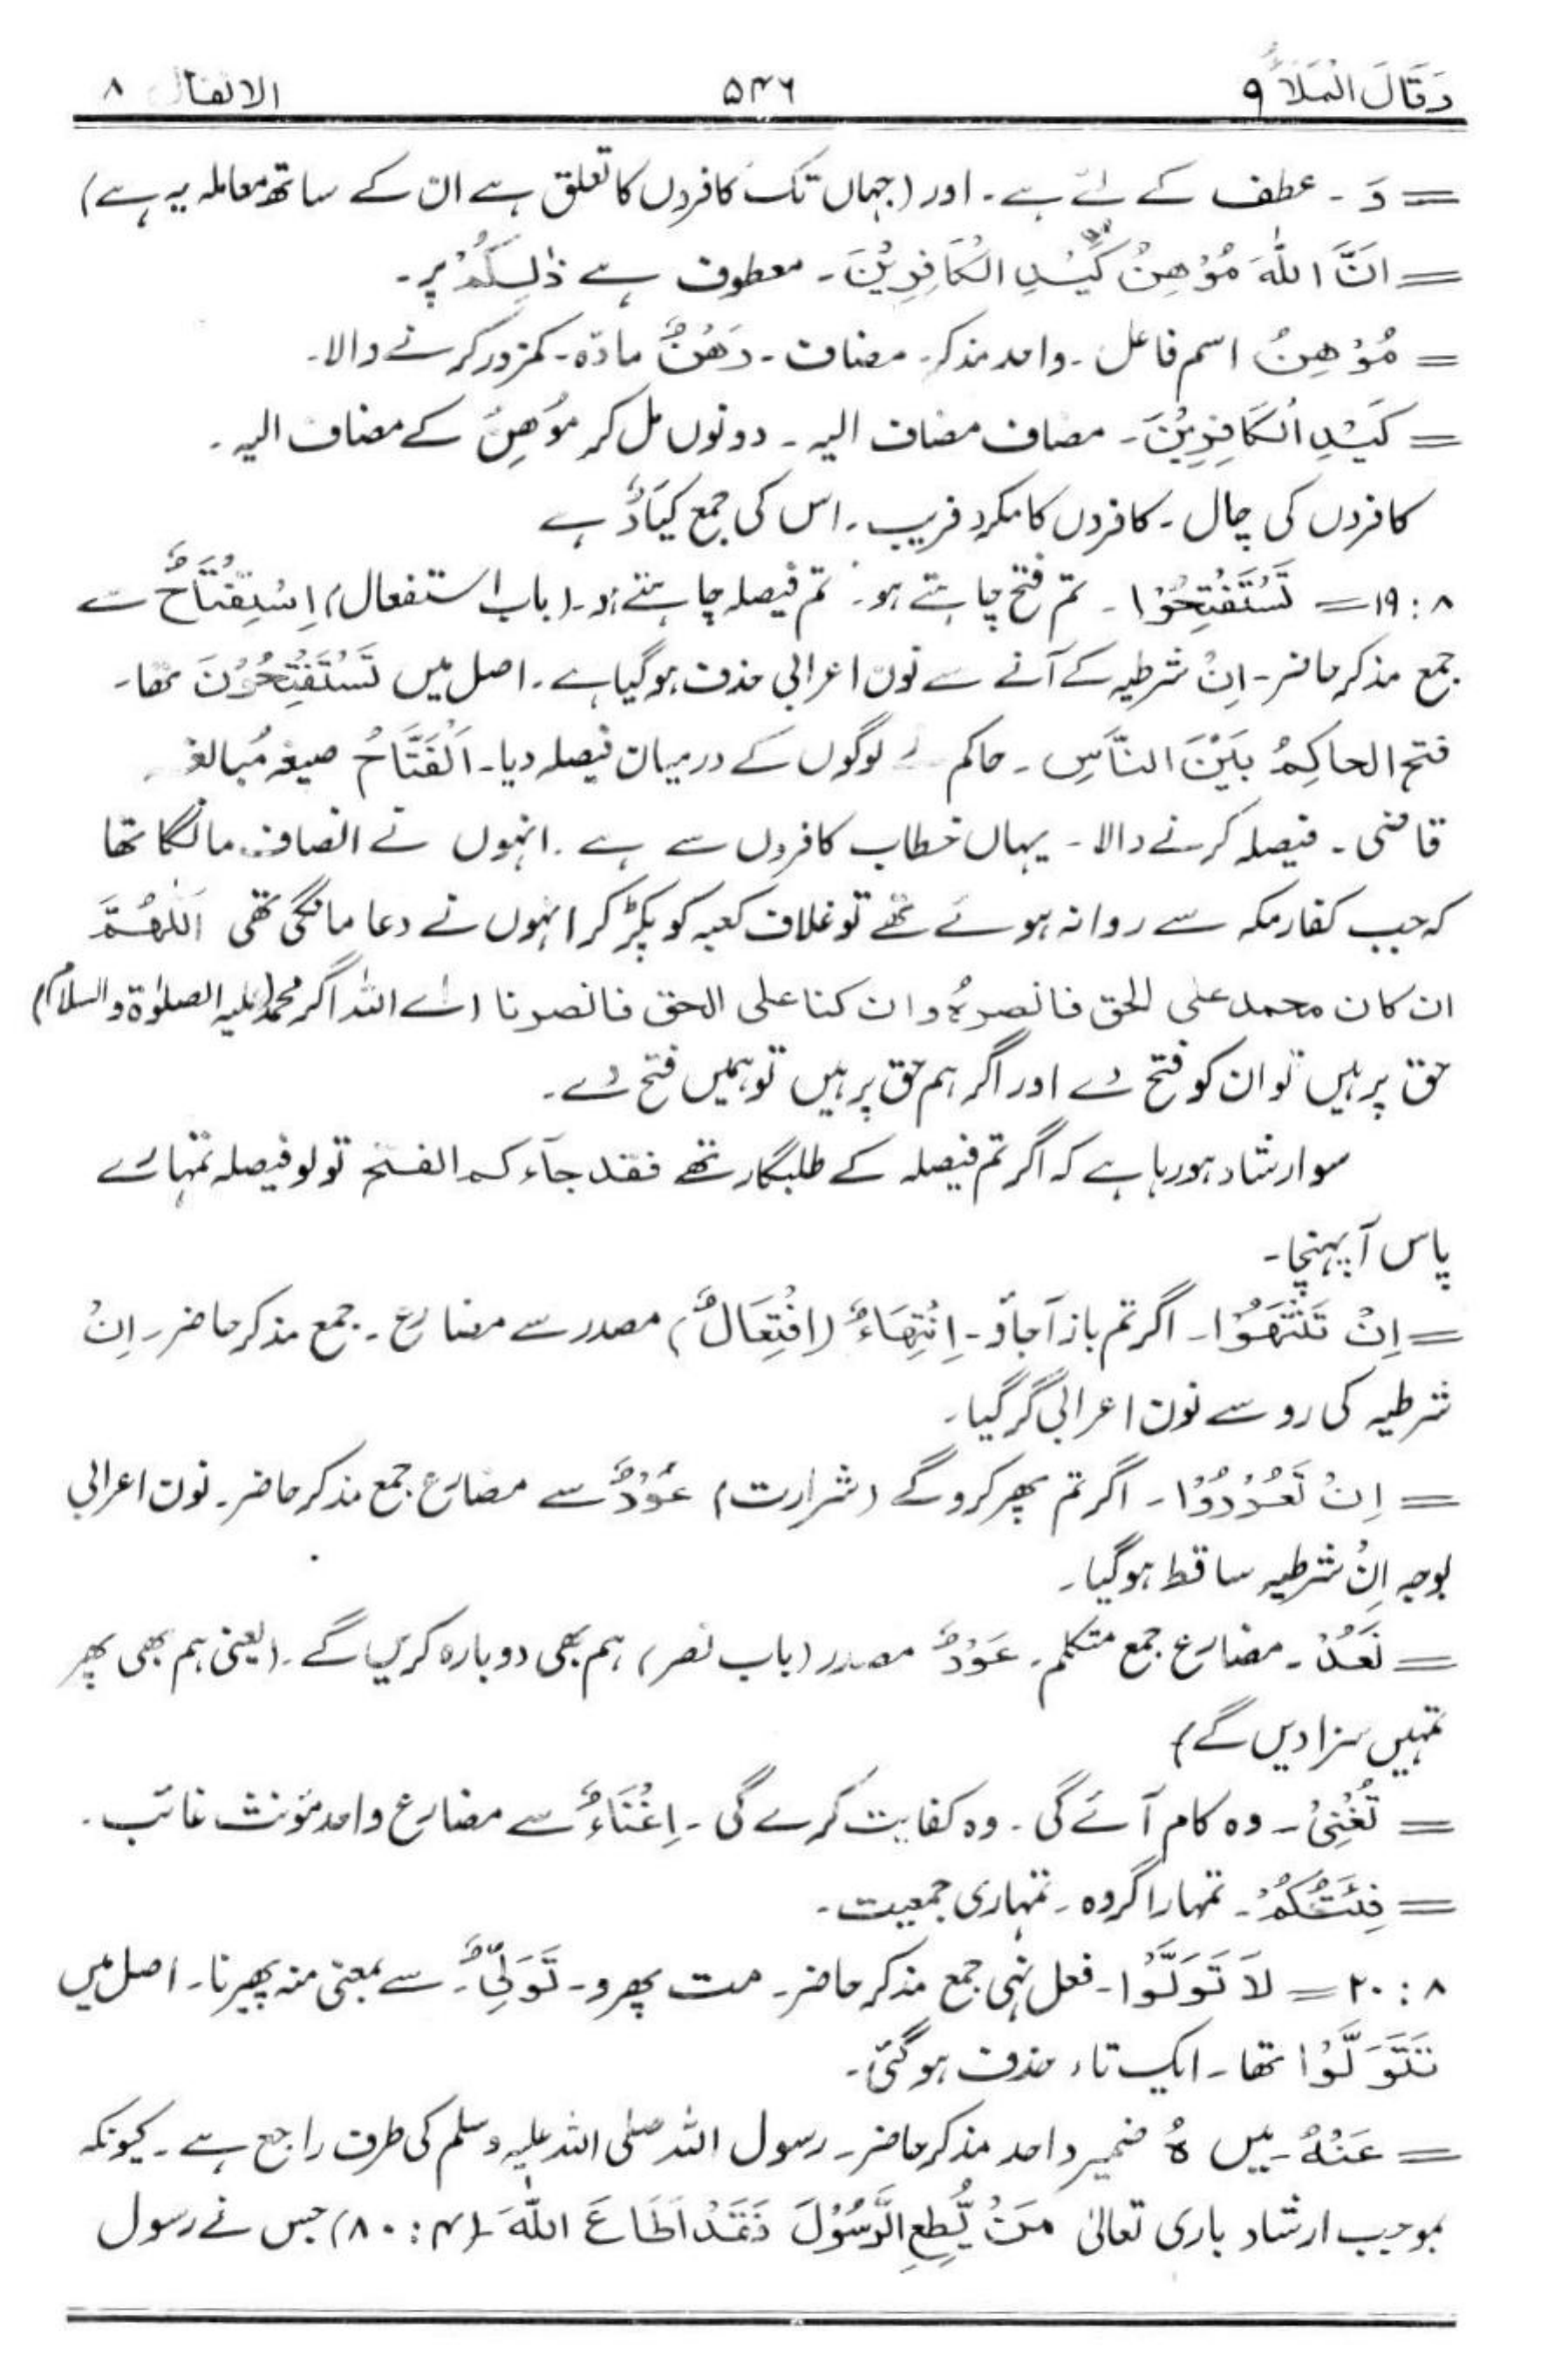 وَقَالَ الْمَلَاُ ۹ ۵۴۶ الانفال ۸
= وَ ۔ عطف کے لئے ہے۔ اور (جہاں تک کافروں کا تعلق ہے ان کے ساتھ معاملہ یہ ہے)
= اَنَّ اللّٰهَ مُوْهِنُ كَيْدِ الْكَافِرِيْنَ۔ معطوف ہے ذٰلِكُمْ پر۔
= مُوْهِنُ اسم فاعل۔ واحد مذکر۔ مضاف۔ وَهْنٌ مادّہ۔ کمزور کرنے والا۔
= كَيْدِ الْكَافِرِيْنَ۔ مضاف مضاف الیہ۔ دونوں مل کر مُوْهِنُ کے مضاف الیہ۔
کافروں کی چال۔ کافروں کا مکر و فریب۔ اس کی جمع كِيَادٌ ہے
۸: ۱۹ = تَسْتَفْتِحُوْا۔ تم فتح چاہتے ہو۔ تم فیصلہ چاہتے ہو۔ (باب استفعال) اِسْتِفْتَاحٌ سے
جمع مذکر حاضر۔ اِنْ شرطیہ کے آنے سے نون اعرابی حذف ہوگیا ہے۔ اصل میں تَسْتَفْتِحُوْنَ تھا۔
فتح الحاكِمُ بَيْنَ النَّاسِ۔ حاکم نے لوگوں کے درمیان فیصلہ دیا۔ اَلْفَتَّاحُ صیغہ مُبالغہ
قاضی۔ فیصلہ کرنے والا۔ یہاں خطاب کافروں سے ہے۔ انہوں نے انصاف مانگا تھا
کہ جب کفار مکہ سے روانہ ہوئے تھے تو غلاف کعبہ کو پکڑ کر انہوں نے دعا مانگی تھی اَللّٰهُمَّ
ان کان محمد علی الحق فانصرہُ وان کنا علی الحق فانصرنا (اے اللہ اگر محمد (علیہ الصلوٰۃ والسلام)
حق پر ہیں تو ان کو فتح دے اور اگر ہم حق پر ہیں تو ہمیں فتح دے۔
سو ارشاد ہو رہا ہے کہ اگر تم فیصلہ کے طلبگار تھے فقد جآءکم الفتح تو لو فیصلہ تمہارے
پاس آپہنچا۔
= اِنْ تَنْتَهُوْا۔ اگر تم باز آجاؤ۔ اِنْتِهَاءٌ (اِفْتِعَالٌ) مصدر سے مضارع۔ جمع مذکر حاضر۔ اِنْ
شرطیہ کی رو سے نون اعرابی گر گیا۔
= اِنْ تَعُوْدُوْا۔ اگر تم پھر کرو گے (شرارت) عَوْدٌ سے مضارع جمع مذکر حاضر۔ نون اعرابی
بوجہ اِنْ شرطیہ ساقط ہوگیا۔
= نَعُدْ۔ مضارع جمع متکلم۔ عَوْدٌ مصدر (باب نصر) ہم بھی دوبارہ کریں گے۔ (یعنی ہم بھی پھر
تمہیں سزا دیں گے)
= تُغْنِیْ۔ وہ کام آئے گی۔ وہ کفایت کرے گی۔ اِغْنَاءٌ سے مضارع واحد مؤنث غائب۔
= فِئَتُكُمْ۔ تمہارا گروہ۔ تمہاری جمعیت۔
۸: ۲۰ = لَا تَوَلَّوْا۔ فعل نہی جمع مذکر حاضر۔ مت پھرو۔ تَوَلِّیٌ۔ سے بمعنی منہ پھیرنا۔ اصل میں
تَتَوَلَّوْا تھا۔ ایک تاء حذف ہو گئی۔
= عَنْهُ۔ میں هُ ضمیر واحد مذکر حاضر۔ رسول اللہ صلی اللہ علیہ وسلم کی طرف راجع ہے۔ کیونکہ
بموجب ارشاد باری تعالیٰ مَنْ يُّطِعِ الرَّسُوْلَ فَقَدْ اَطَاعَ اللّٰهَ (۴: ۸۰) جس نے رسول